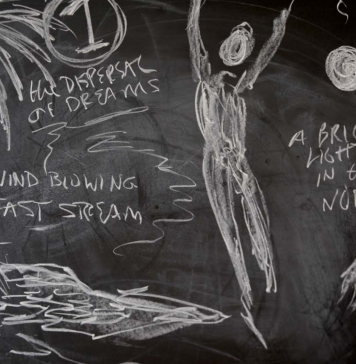 1
THE DISPERSAL
OF DREAMS
WIND BLOWING
FAST STREAM
A BRI
LIGH
IN
NO